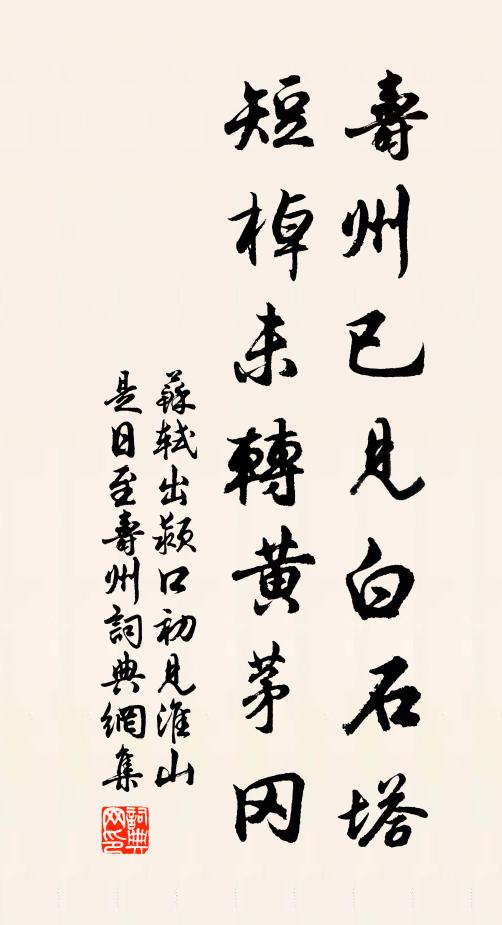 壽州已見白石塔
短棹未轉黃茅冈
蘇軾出潁口初見淮山
是日至壽州詞典網集
詞典
网印